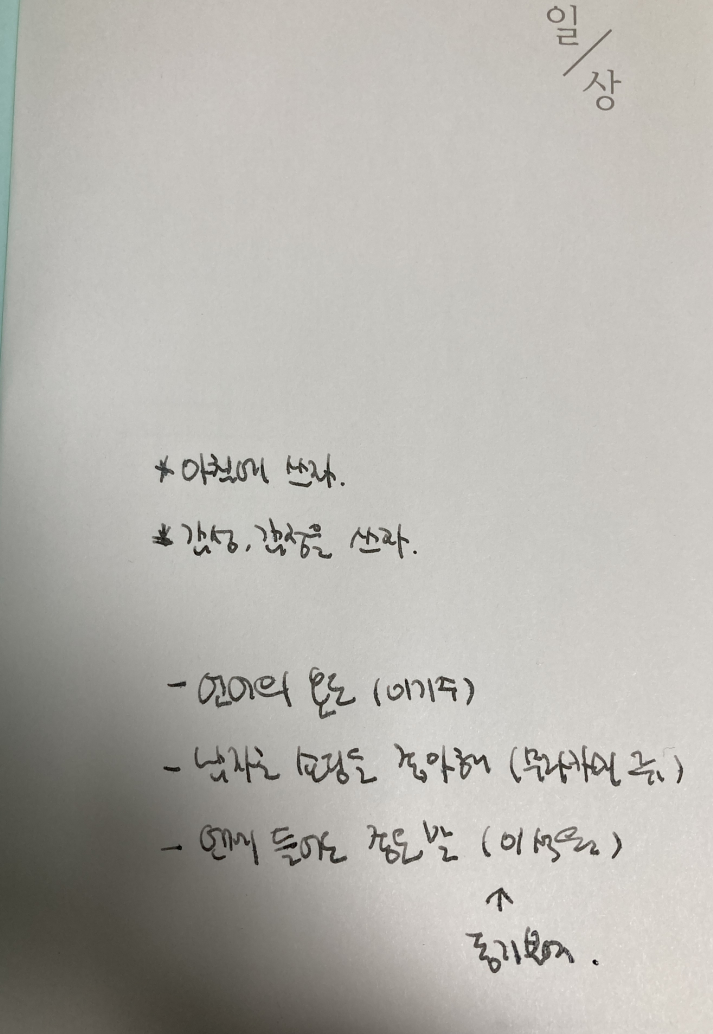 일/상
* 아침에 쓰자.
* 감성, 감정을 쓰라.
- 언어의 온도 (이기주)
- 남자는 쇼핑을 좋아해 (무라카미 류)
- 언제 들어도 좋은 말 (이석원)
↑
동기부여.